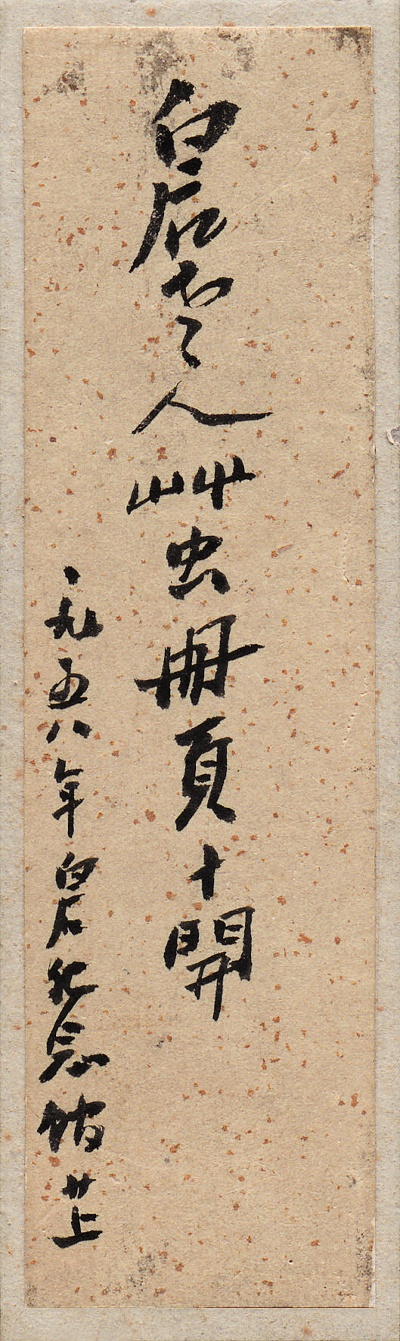 白石老人艸虫冊頁十開
一九五八年白石紀念館